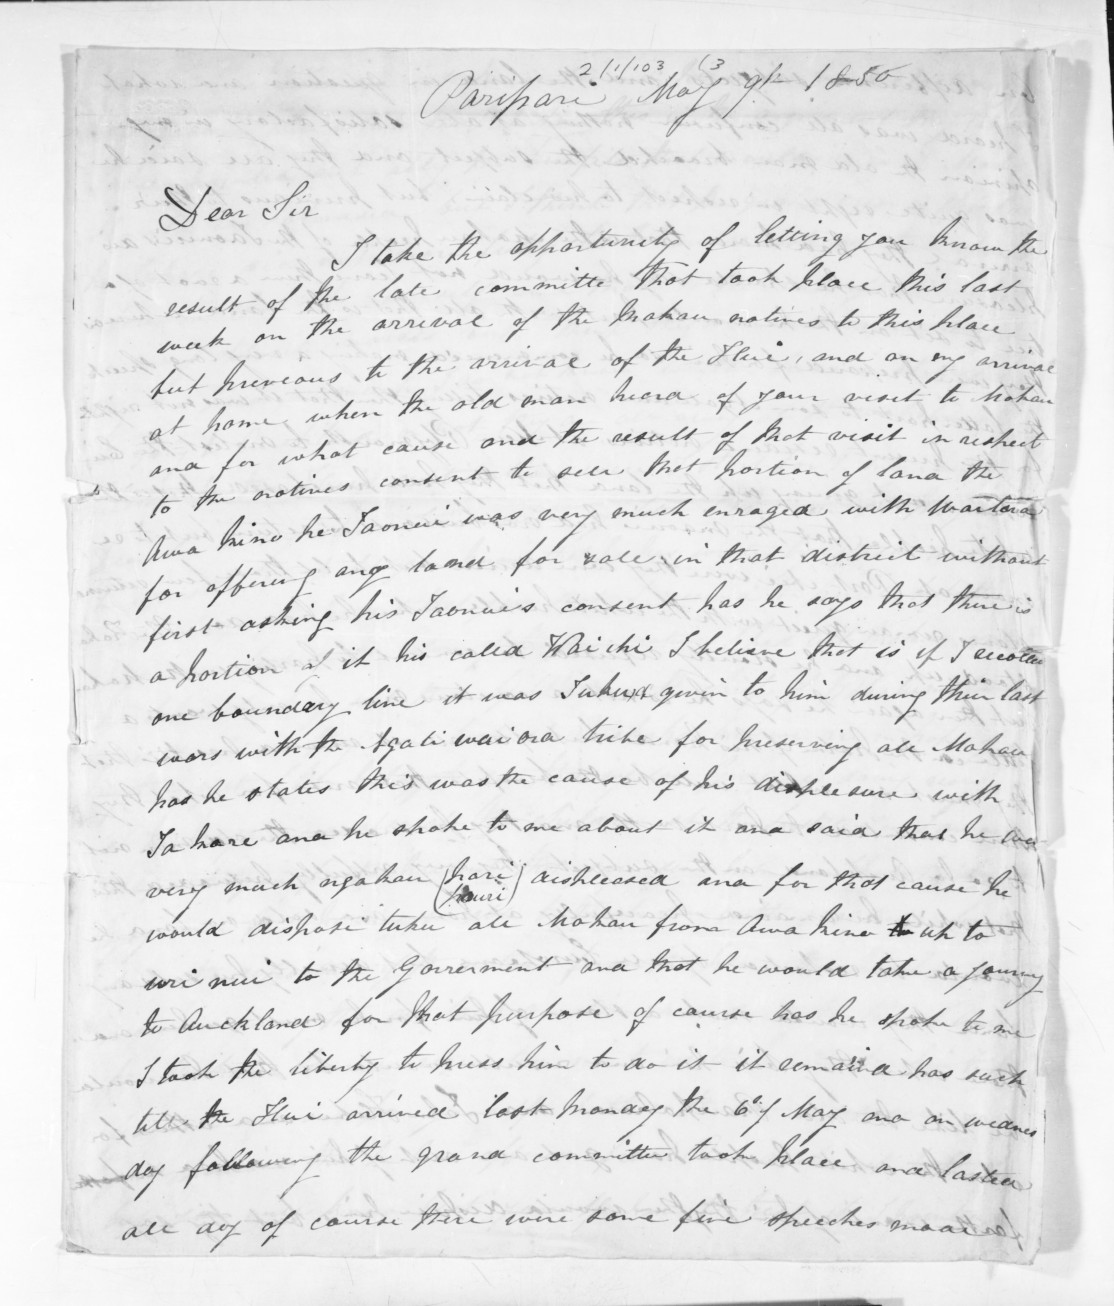 2/1/103 (3
Paripari May 9th 1850
Dear Sir
I take the opportunity of letting you know the
result of the late committe that took place this last
week on the arrival of the Mokau natives to this place
but preveous to the arrival of the Hui, and on my arrival
at home, when the old man heard of your visit to Mokau
and for what cause and the result of that visit in respect
to the natives consent to sell that portion of land the
Awa kino he Taonui was very much enraged with Waitara
for offering any land for sale in that district without
first asking his Taonui's consent has he says that there is
a portion of it his called I believe that is if I recollec
one boundary line it was Tuku'd given to him during their last
wars with the Ngati waiora tribe for preserving all Mokau
has he states this was the cause of his displesure with
Ta kare and he spoke to me about it and said that he was
very much ngakau (pari) displeased and for that cause he
(pouri)
would dispose tuku all Mokau from Awa kino up to
uri nui to the Goverment and that he would take a journy
to Auckland for that purpose of course has he spoke to me
I took the liberty to press him to do it it remained has such
till the Hui arrived last monday the 6 of May and on wednes
day following the grand committee took place and lasted
all day of course there were some fine speeches made